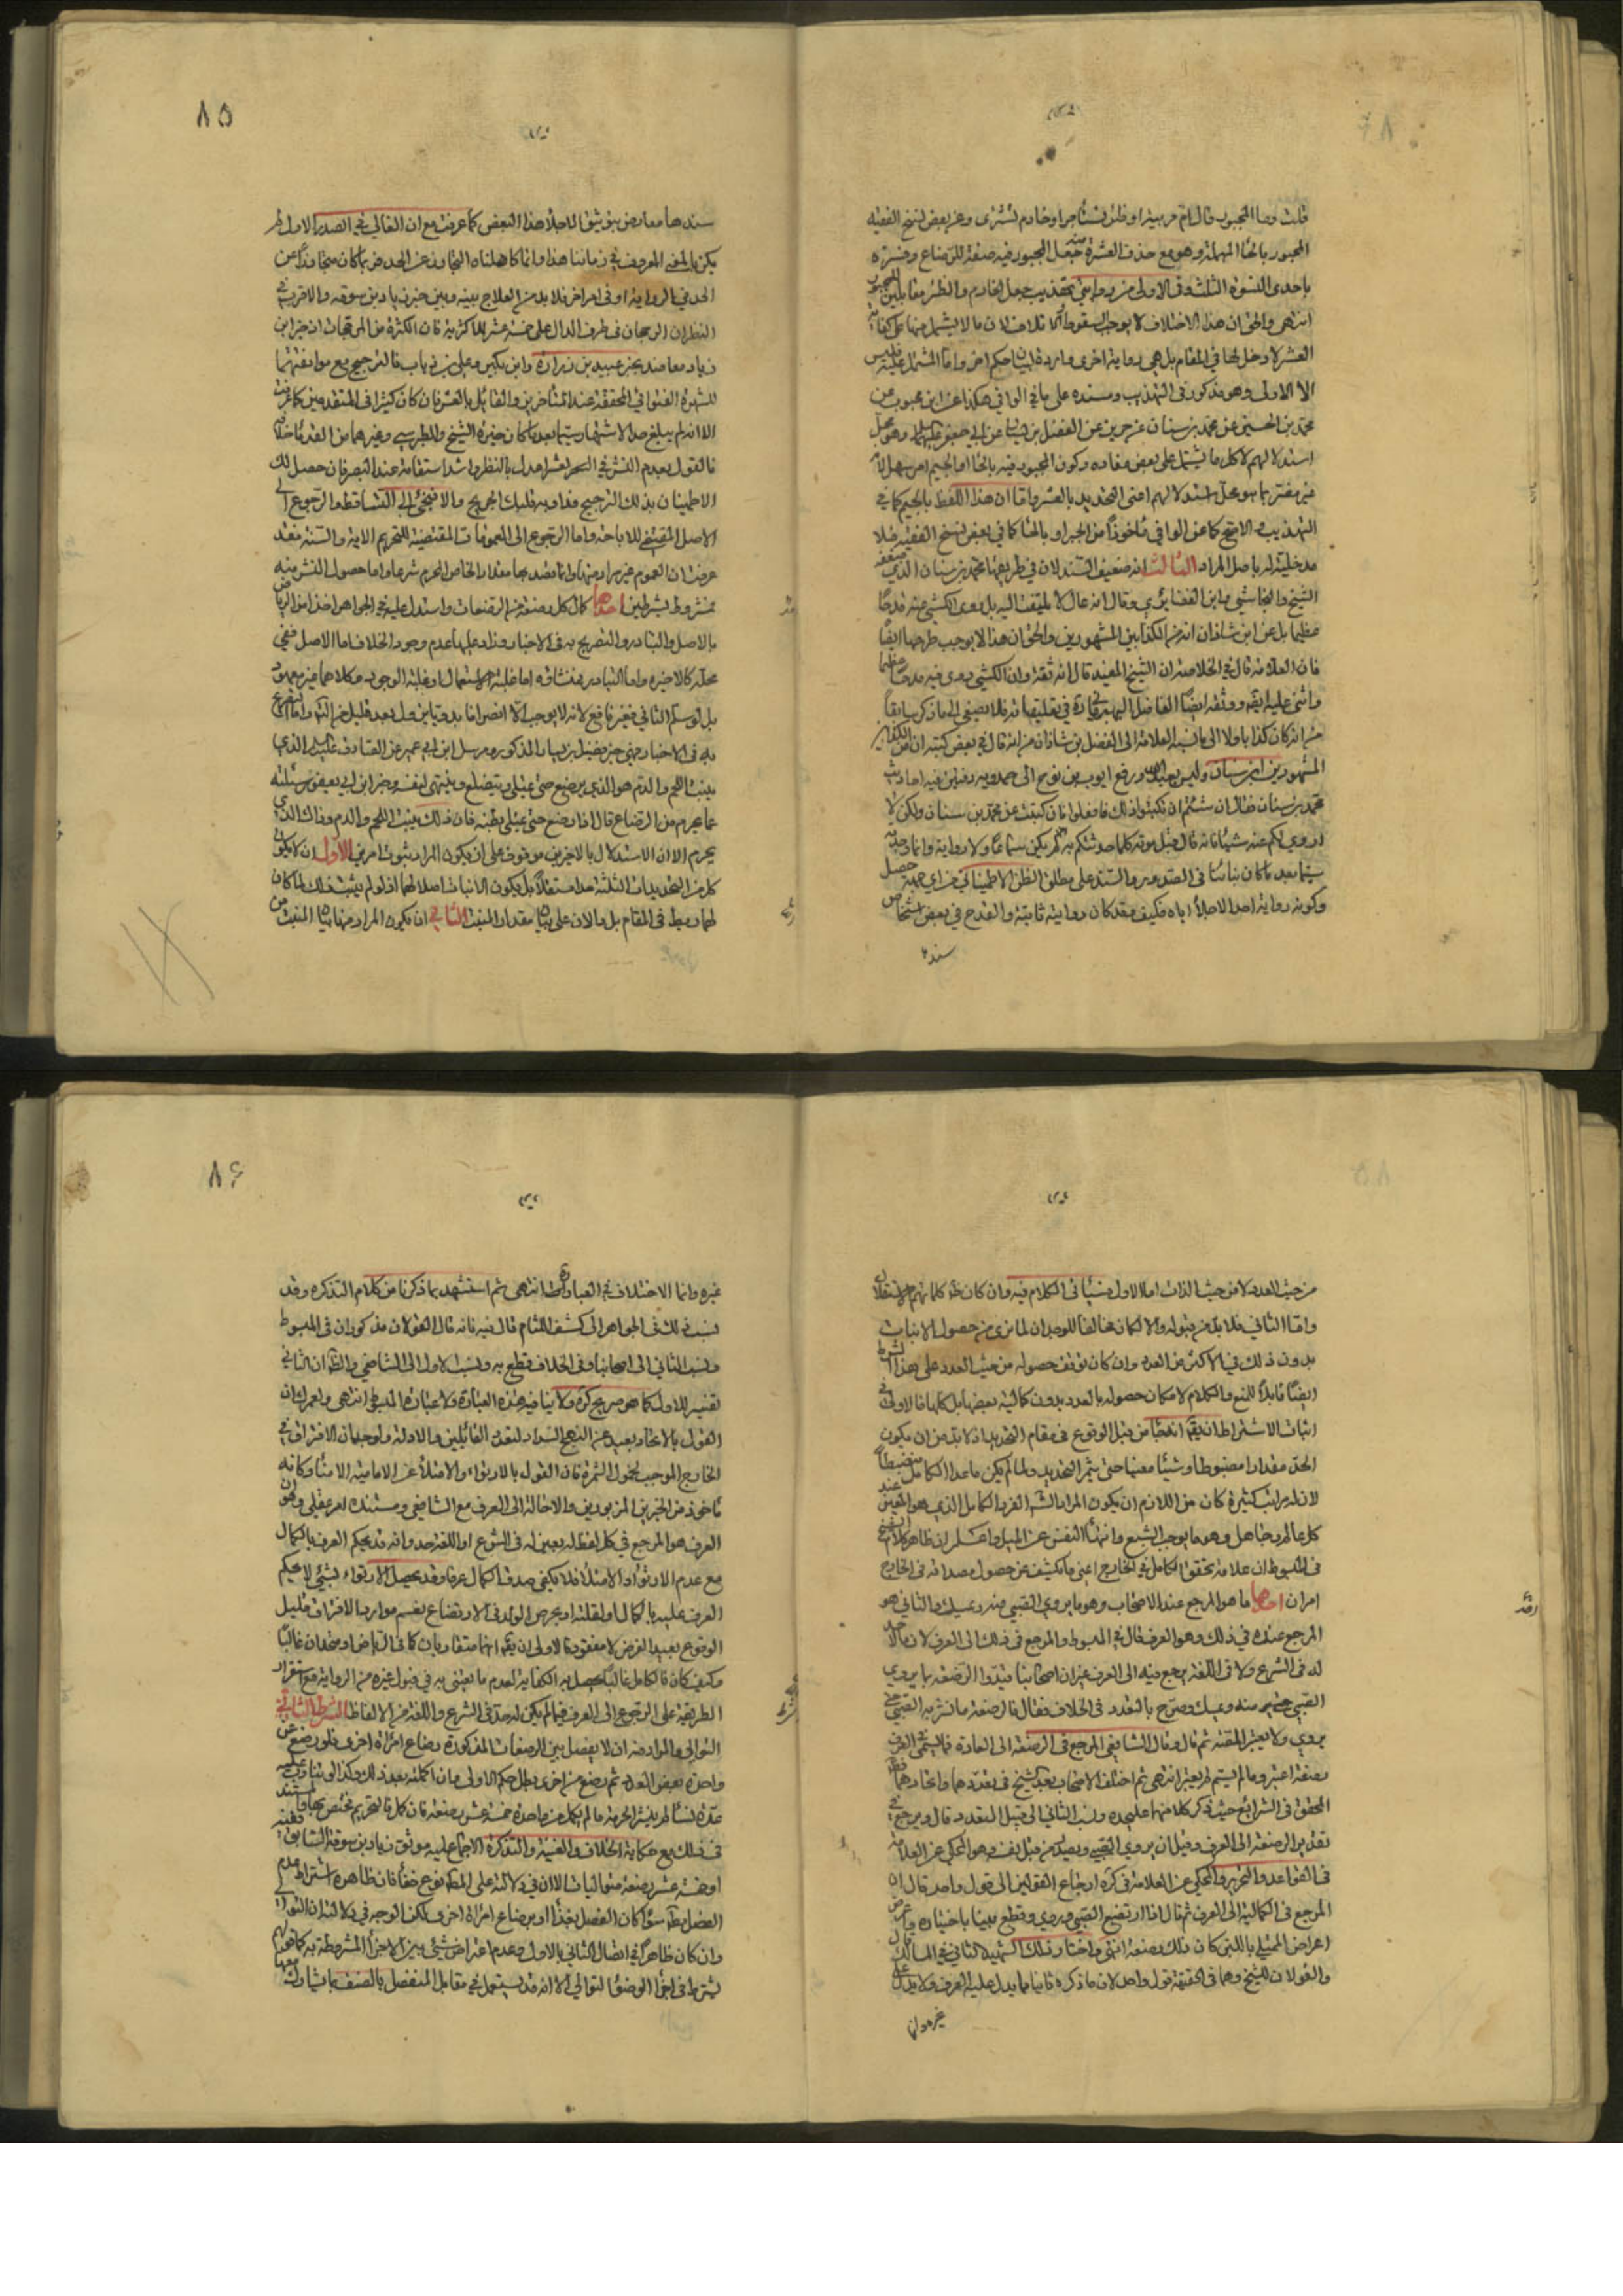 ٨٥
قلت وما المجبور قال ام مربية او ظئر تستأجر او خادم تشترى وعن بعض نسخ الفقيه
المجبور بالحاء المهملة وهو مع حذف العشرة منه جعل المجبور فيه صفة للرضاع وفسره
باحدى النسوة الثلث وفي الاولى
انتهى والحق ان هذا الاختلاف لا يوجب السقوط
العشر لا دخل لها في المقام بل هي رواية اخرى واردة لبيان حكم اخر واما المشتمل عليه فليس
الا الاولى وهو مذكور في التهذيب ومسنده على ما في الوافي هكذا عن ابن محبوب عن
محمد بن الحسين عن محمد بن سنان عن حريز عن الفضيل بن يسار عن ابي جعفر عليه السلام وهو محل
استدلالهم لا كل ما يشتمل على بعض مفاده وكون المجبور فيه بالحاء او الجيم امر سهل لانه
غير مضر بما هو محل استدلالهم اعنى التحديد بالعشر واما ان هذا اللفظ بالجيم كما في
التهذيب والاصح كما عن الوافي مأخوذا من الجبر او بالحاء كما في بعض نسخ الفقيه فلا
مدخلية له باصل المراد الثالث انه ضعيف السند لان في طريقها محمد بن سنان الذي ضعفه
الشيخ والنجاشي وابن الغضايري وقال انه غال لا يلتفت اليه بل روى الكشي فيه قدحا
عظيما بل عن ابن شاذان انه من الكذابين المشهورين والحق ان هذا لا يوجب طرحها ايضا
فان العلامة قال في الخلاصة ان الشيخ المفيد قال انه ثقة وان الكشي روى فيه مدحا عظيما
واثنى عليه
من انه كان كذابا ولا الى ما نسبه العلامة الى الفضل بن شاذان من انه قال في بعض كتبه ان من الكذابين
المشهورين ابن سنان وليس بعبد الله ورفع ايوب بن نوح الى حمدويه دفترا فيه احاديث
محمد بن سنان فقال ان شئتم ان تكتبوا ذلك فافعلوا فاني كتبت عن محمد بن سنان ولكن لا
اروي لكم عنه شيئا فانه قال قبل موته كلما حدثتكم به لم يكن سماعا ولا رواية وانما وجدته
سيما بعد ما كان بنائنا في الصدور والسند على مطلق الظن الاطميناني من اي جهة حصل
وكونه رواية احد الاجلاء اياه فكيف فقد كان روايته ثابتة والقدح في بعض اشخاص
سندها
سندها معارض بتوثيق الاجلاء هذا البعض كما عرفت مع ان الغالي في الصدر الاول لم
يكن بالمعنى المعروف في زماننا هذا وانما
الحد في الرواية او في امر اخر فلا بد من العلاج بينه وبين خبر زياد بن سوقه والاقرب في
النظر ان الرجحان في طرف الدال على خمسة عشر للاكثرية فان الكثرة من المرجحات اذ خبر ابن
زياد معاضد بخبر عبيد بن زرارة وابن بكير وعلي بن رئاب فالترجيح مع موافقتهما
للشهرة الفتوائي المحققة عند المتأخرين والقائل بالعشر وان كان كثيرا في المتقدمين كما عرفت
الا انه لم يبلغ حد الاشتهار سيما بعد ما كان خيرة الشيخ والطبرسي وغيرهما من القدماء خلافه
فالقول بعدم النشر في العشر اعدل بالنظر واشد استقامة عند التبصر فان حصل لك
الاطمينان بذلك الترجيح فهو اويه فليك الجريح والا فيجئ الى التساقط والرجوع الى
الاصل المقتضي للاباحة واما الرجوع الى العمومات المقتضية للتحريم الاية والسنة فقد
عرفت ان العموم غير مراد منها وانما قصد بها مقدار الخاص المحرم شرعا واما حصول النشر منه
فمشروط بشرطين احدها كمال كل رضعة من الرضعات واستدل عليه في الجواهر اخذا من الرياض
بالاصل والتبادر والتصريح به في الاخبار وزاد عليها عدم وجود الخلاف اما الاصل ففي
محله كالاخيرة واما التبادر فمنشاؤه اما غلبة الاستعمال او غلبة الوجود وكلاهما غير معهود
بل لو سلم الثاني فغير نافع لانه لا يوجب الا انصرافا بدويا يزول بعد قليل من التأمل واما التصريح
به في الاخبار ففي خبر فضيل بن يسار المذكور ومرسل ابن ابي عمير عن الصادق عليه السلام الذي
ينبت اللحم والدم هو الذي يرضع حتى يمتلي ويتضلع وينتهي نفسه وخبر ابن ابي يعفور سئلته
عما يحرم من الرضاع قال اذا رضع حتى يمتلي بطنه فان ذلك ينبت اللحم والدم وذاك الذي
يحرم الا ان الاستدلال بالاخرين موقوف على ان يكون المراد ثبوت امرين الاول ان لا يكون
كل من التحديدات الثلثة حدا مستقلا بل يكون الانبات اصلا لهما اذ لو لم يثبت ذلك لما كان
لهما ربط في المقام بل دالان على بيان مقدار المنبت الثاني ان يكون المراد منها بيان المنبت من
٨٦
من حيث العدد لا من حيث الذات اما الاول فسيأتي الكلام فيه وان كان ظاهر كلماتهم الاستقلال
واما الثاني فلا بد من قبوله والا لكان مخالفا للوجدان لما نرى من حصول الانبات
بدون ذلك في الاكثر من العدد وان كان توقف حصوله من حيث العدد على هذا الشرط
ايضا قابلا للمنع والكلام لامكان حصوله بالعدد بدون كمالية بعضها بل كلها فالاولى في
اثبات الاشتراط ان يقم انه لما من قبل الوقوع في مقام التحديد اذ لا بد من ان يكون
الحد مقدارا مضبوطا وشيئا معينا حتى يتم التحديد ولما لم يكن ما عدا الكامل منضبطا
لان له مراتب كثيرة كان من اللازم ان يكون المراد الفرد الكامل الذي هو المعين عند
كل عالم وجاهل وهو ما يوجب الشبع وانتهاء النفس عن الميل واعلم ان ظاهر كلام الشيخ
في المبسوط ان علامة تحقق الكامل في الخارج اعنى ما يكشف عن حصول مصداقه في الخارج
امران احدها ما هو المرجع عند الاصحاب وهو ما يروي الصبي منه ويمسك والثاني هو
المرجع عنده في ذلك وهو العرف قال في المبسوط والمرجع في ذلك الى العرف لان ما لا حد
له في الشرع ولا في اللغة يرجع فيه الى العرف غير ان اصحابنا قيدوا الرضعة بما يروي
الصبي منه ويمسك وصرح بالتعدد في الخلاف فقال الرضعة ما نشر به الصبي حتى
يروي ولا يعتبر المقنة ثم قال وقال الشافعي المرجع في الرضعة الى العادة فما يسمى في العرف
رضعة اعتبر وما لم يسم لم يعتبر انتهى ثم اختلف الاصحاب بعد الشيخ في تعددهما واتحادهما فعن
المحقق في الشرايع حيث ذكر كلا منهما عليحدة ونسب الثاني الى قيل التعدد قال ويرجع في
تقدير الرضعة الى العرف وقيل ان يروي الصبي ويصد من قبل نفسه وهو المحكي عن العلامة
في القواعد والتحرير والمحكي عن العلامة في كره ارجاع القولين الى قول واحد قال ان
المرجع في الكمالية الى العرف ثم قال اذا ارتضع الصبي وروي وقطع بينا باختياره واعرض
اعراض الممتلي باللبن كان ذلك رضعة انتهى واختار ذلك الشهيد الثاني في المسالك قال
والقولان للشيخ وهما في الحقيقة قول واحد لان ما ذكره ثانيا مما يدل عليه العرف ولا يدل على
غيره وانما
غيره وانما الاختلاف في العبارة انتهى ثم استشهد بما ذكرنا من كلام التذكره وقد
نسب ذلك في الجواهر الى كشف اللثام قال فيه فانه قال القولان مذكوران في المبسوط
ونسب الثاني الى اصحابنا وفي الخلاف قطع به ونسب الاول الى الشافعي والظاهر ان الثاني
تفسير للاول كما هو صريح كره ولا ينافيه هذه العبارة ولا عبارة المبسوط انتهى ولعمرك ان
القول بالاتحاد بعيد عن النهج السداد لتعدد القائلين والادلة ولوجدان الافتراق في
الخارج الموجب لحصول الثمرة فان القول بالارتواء والامتلاء عن الامامية الامناء وكانه
مأخوذ من الخبرين المزبورين والاحالة الى العرف مع الشافعي ومستنده امر عقلي وهو ان
العرف هو المرجع في كل لفظ لم يعين له في الشرع او اللغة حد وانه قد يحكم العرف بالكمال
مع عدم الارتواء او الامتلاء فلا يكفي صدق الكمال عرفا وقد يحصل الارتواء بشيء لا يحكم
العرف عليه بالكمال
الوقوع بعيد الفرض لا مفقود فالاولى ان يقم انهما متقاربان كما في الرياض او متحدان غالبا
وكيف كان فالكامل غالبا يحصل به الكفاية لعدم ما يعتنى به في قبول غيره من الرواية مع استقرار
الطريقة على الرجوع الى العرف فيما لم يكن له حد في الشرع واللغة من الالفاظ الشرط الثاني
التوالي والمراد منه ان لا يفصل بين الرضعات المذكورة رضاع امراة اخرى فلو رضع من
واحدة بعض العدد ثم رضع من اخرى بطل حكم الاولى وان اكملته بعد ذلك وكذا لو تناوب عليه
عدة نساء لم ينشر الحرمة ما لم يكمل من واحدة خمسة عشر رضعة فان كمل فالتحريم يختص بها والمستند
في ذلك مع حكاية الخلاف والغنية والتذكرة الاجماع عليه موثق زياد بن سوقة السابق ففيه
او خمسة عشر رضعة متواليات الا ان في دلالته على المط نوع خفاء فان ظاهره اشتراط عدم
الفصل مط سواء كان الفصل بغذاء او برضاع امراة اخرى
وان كان ظاهرا في اتصال الثاني بالاول وعدم اعتراض شيء بين الاجزاء المشروطة به كما هو المراد
يشترط في اجزاء الوضوء التوالي الا انه قد يستعمل في مقابل المنفصل بالصنف